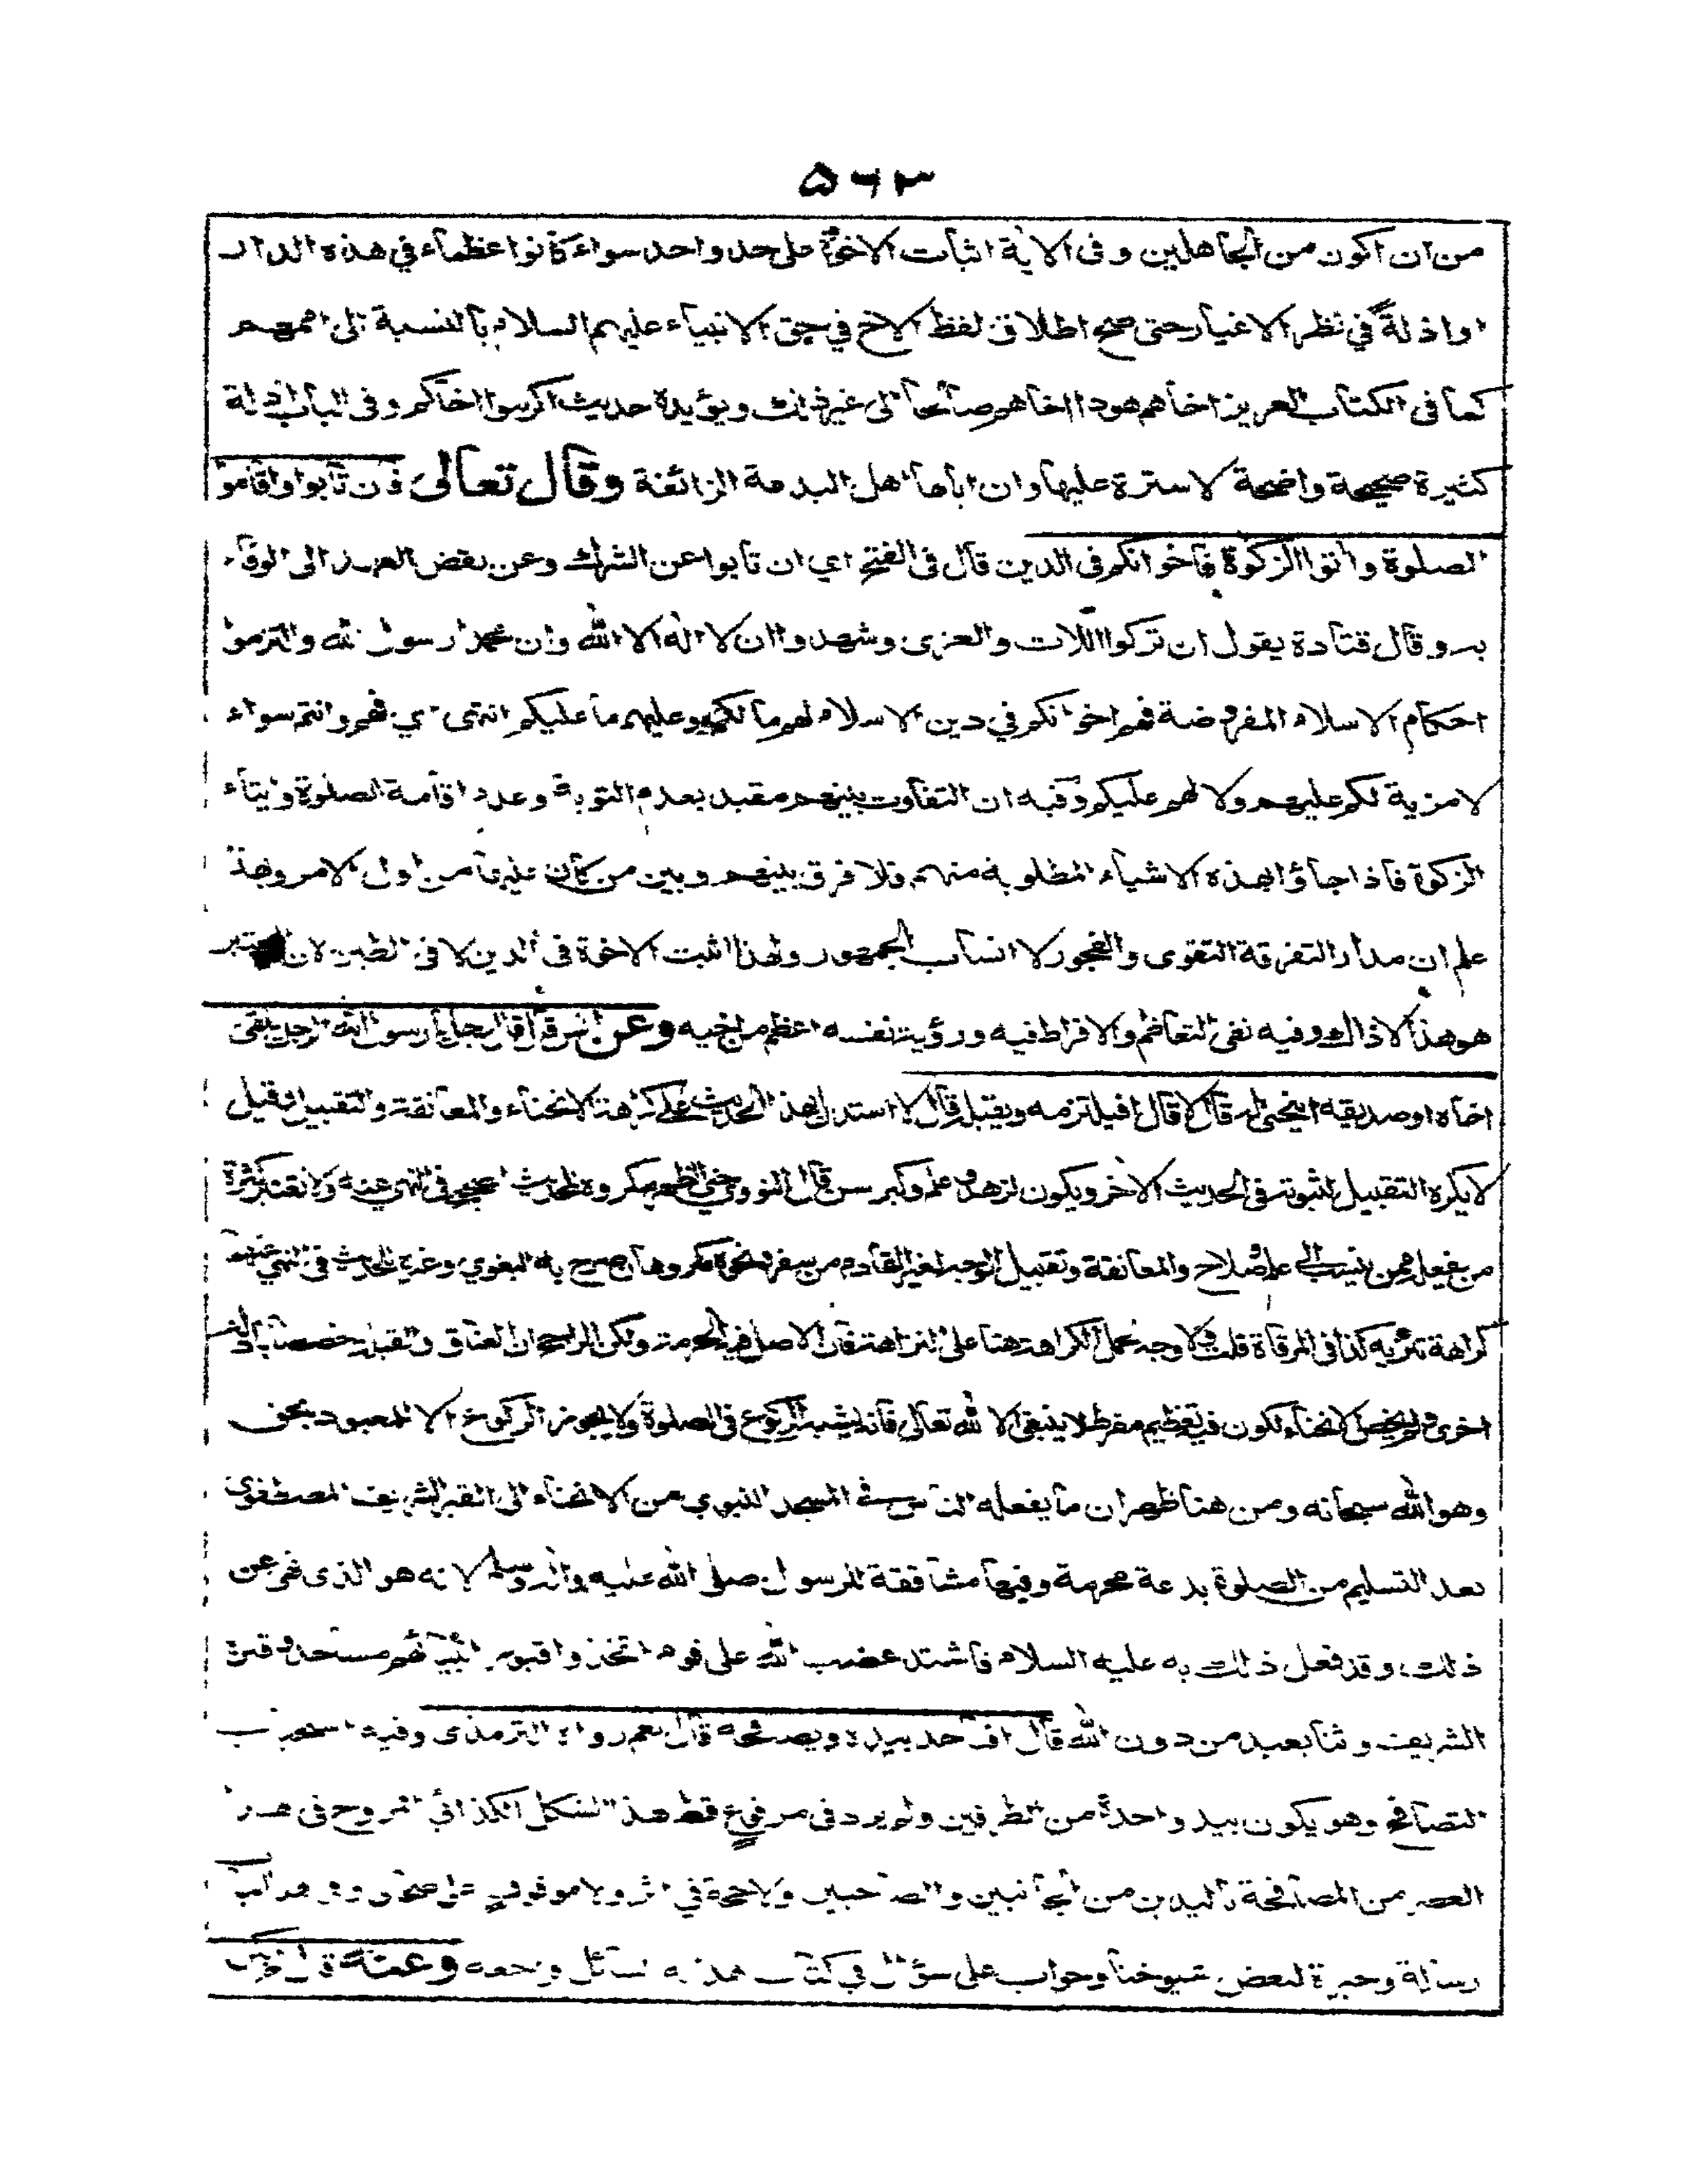 ۵۶۳
من ان اكون من الجاهلين وفى الاية اثبات الاخوة على حد واحد سواء كانوا عظماء في هذه الدار
او اذلة في نظر الاغيار حتى صح اطلاق لفظ الاخ في حق الانبياء عليهم السلام بالنسبة الى اممهم
كما فى الكتاب العزيز اخاهم هودا اخاهم صالحا الى غير ذلك ويؤيده حديث اكرموا اخاكم وفى الباب ادلة
كثيرة صحيحة واضحة لا سترة عليها وان اباها اهل البدعة الزائغة وقال تعالى فان تابوا واقاموا
الصلوة واتوا الزكوة فاخوانكم فى الدين قال فى الفتح اي ان تابوا عن الشرك وعن نقض العهد الى الوفاء
به وقال قتادة يقول ان تركوا اللات والعزى وشهدوا ان لا اله الا الله وان محمدا رسول الله والتزموا
احكام الاسلام المفروضة فهم اخوانكم في دين الاسلام لهم ما لكم وعليهم ما عليكم انتهى اي فهم وانتم سواء
لا مزية لكم عليهم ولا لهم عليكم وفيه ان التفاوت بينهم مقيد بعدم التوبة وعدم اقامة الصلوة وايتاء
الزكوة فاذا جاؤا بهذه الاشياء المطلوبة منهم فلا فرق بينهم وبين من كان عليها من اول الامر وبهذا
علم ان مدار التفرقة التقوى والفجور لا انساب الجمهور ولهذا اثبت الاخوة فى الدين لا فى الطين لان المعتبر
هو هذا لا ذاك وفيه نفى التعاظم والافراط فيه ورؤية نفسه اعظم من اخيه وعن انس قال قال رجل يا رسول الله الرجل يلقى
اخاه او صديقه اينحنى له قال لا قال افيلتزمه ويقبله قال لا استدل بهذا الحديث على كراهة الانحناء والمعانقة والتقبيل وقيل
لا يكره التقبيل لثبوته فى الحديث الاخر ويكون لزهد وعلم وكبر سن قال النووي حنى الظهر مكروه للحديث الصحيح فى النهي عنه ولا تغتر بكثرة
من يفعله ممن ينسب الى علم وصلاح والمعانقة وتقبيل الوجه لغير القادم من سفر ونحوه مكروهان صرح به البغوي وغيره للحديث فى النهي عنهما
كراهة تنزيه كذا فى المرقاة قلت ولا وجه لحمل الكراهة هنا على النزاهة فان الاصل فيه الحرمة ولكن الراجح ان العناق والتقبيل خصصا بادلة
اخرى ولم يخص الانحناء لكون فيه تعظيم مفرط لا ينبغى الا لله تعالى فانه يشبه الركوع فى الصلوة ولا يجوز الركوع الا للمعبود بحق
وهو الله سبحانه ومن هنا ظهر ان ما يفعله الناس في المسجد النبوي من الانحناء الى القبر الشريف المصطفوى
بعد التسليم من الصلوة بدعة محرمة وفيها مشاققة للرسول صلى الله عليه واله وسلم لانه هو الذى نهى عن
ذلك وقد فعل ذلك به عليه السلام فاشتد غضب الله على قوم اتخذوا قبور انبيائهم مساجد وقبره
الشريف وثنا يعبد من دون الله قال افياخذ بيده ويصافحه قال نعم رواه الترمذى وفيه استحباب
التصافح وهو يكون بيد واحدة من الطرفين ولم يرد فى مرفوع قط هذا الشكل الكذائي المروج فى هذا
العصر من المصافحة باليدين من الجانبين والصاحبين ولا حجة في اثر ولا موقوف على صحابى
رسالة وجيزة لبعض شيوخنا وجواب على سؤال في كتاب وعنه قال